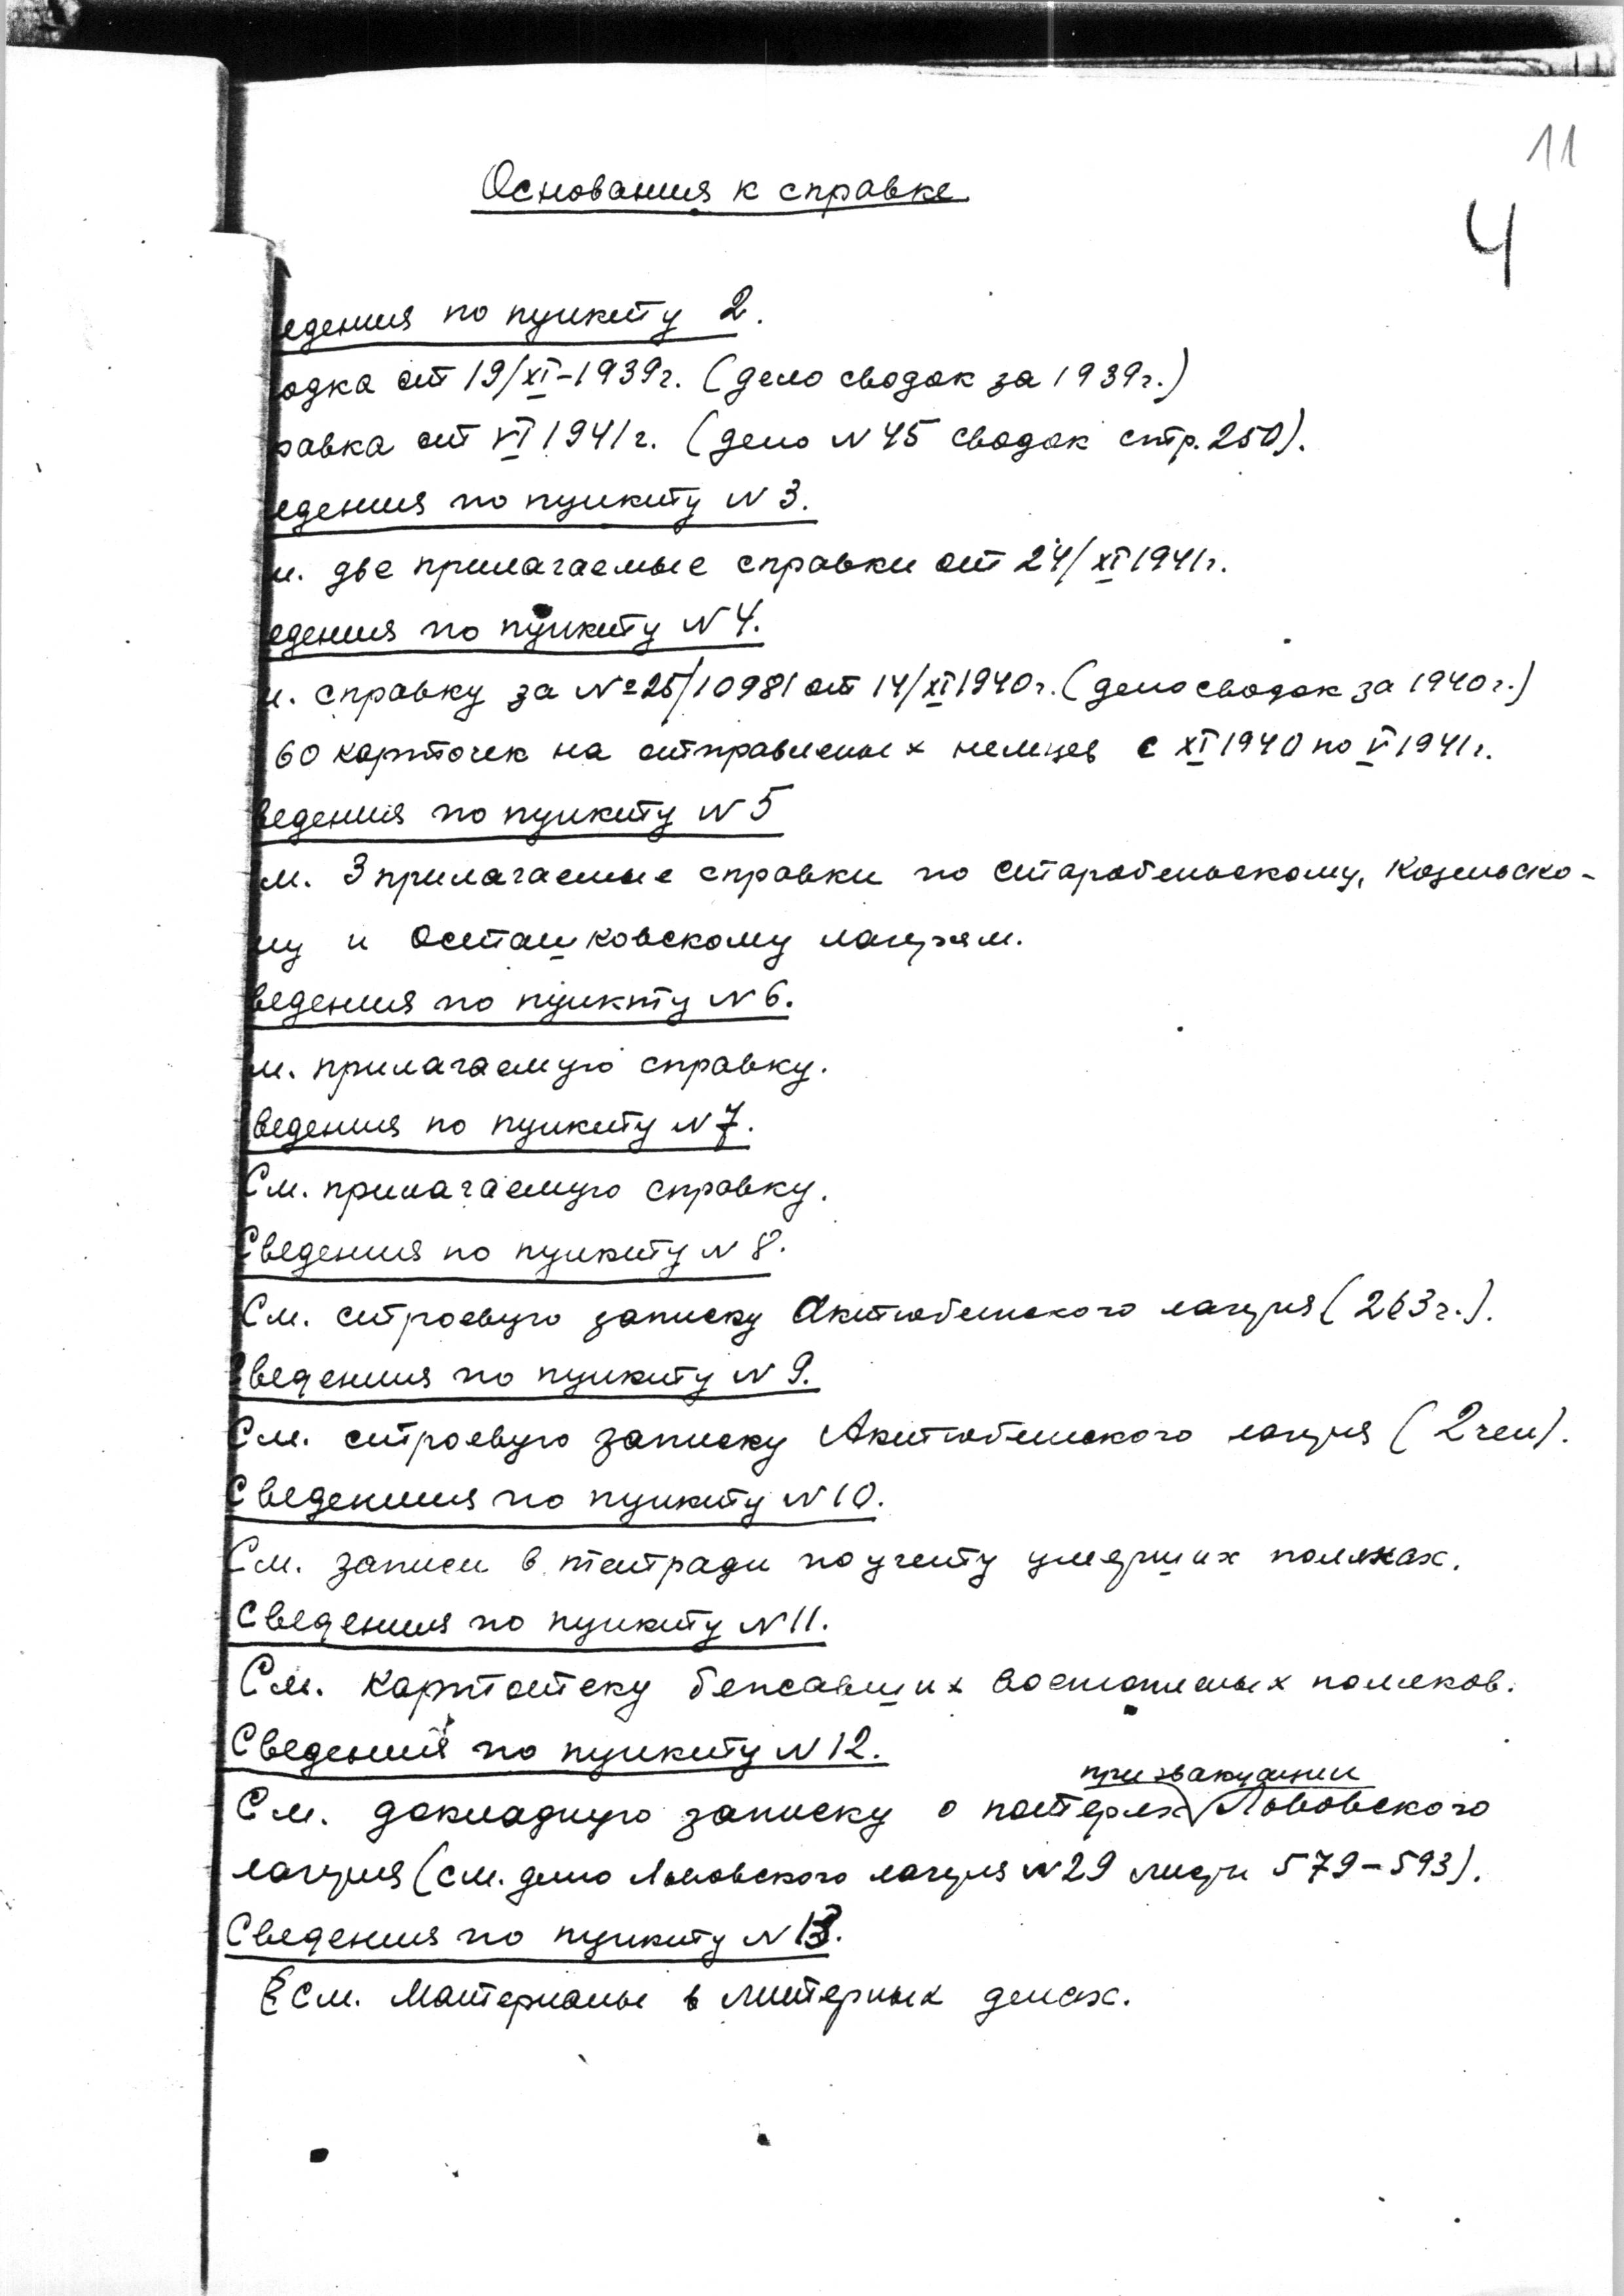 11
Основания к справке
4
едения по пункту 2.
одка от 19/XI-1939г. (дело сводок за 1939г.)
равка от VI 1941г. (дело N 45 сводок стр. 250).
едения по пункту N 3.
м. две прилагаемые справки от 24/XI 1941г.
едения по пункту N 4.
м. справку за №25/10981 от 14/XI 1940г. (дело сводок за 1940г.)
60 карточек на отправленых немцев с XI 1940 по V 1941г.
ведения по пункту N 5
м. 3 прилагаемые справки по Старобельскому, Козельско-
му и Осташковскому лагерям.
ведения по пункту N 6.
м. прилагаемую справку.
ведения по пункту N 7.
См. прилагаемую справку.
Сведения по пункту N 8.
См. строевую записку Актюбинского лагеря (263ч.).
Сведения по пункту N 9.
См. строевую записку Актюбинского лагеря (2 чел).
Сведения по пункту N 10.
См. записи в тетради по учету умерших поляках.
Сведения по пункту N 11.
См. картотеку бежавших военопленых поляков.
Сведения по пункту N 12.
при эвакуации
См. докладную записку о потерях Львовского
лагеря (см. дело Львовского лагеря N 29 листы 579-593).
Сведения по пункту N 13.
См. Материалы в литерных делах.